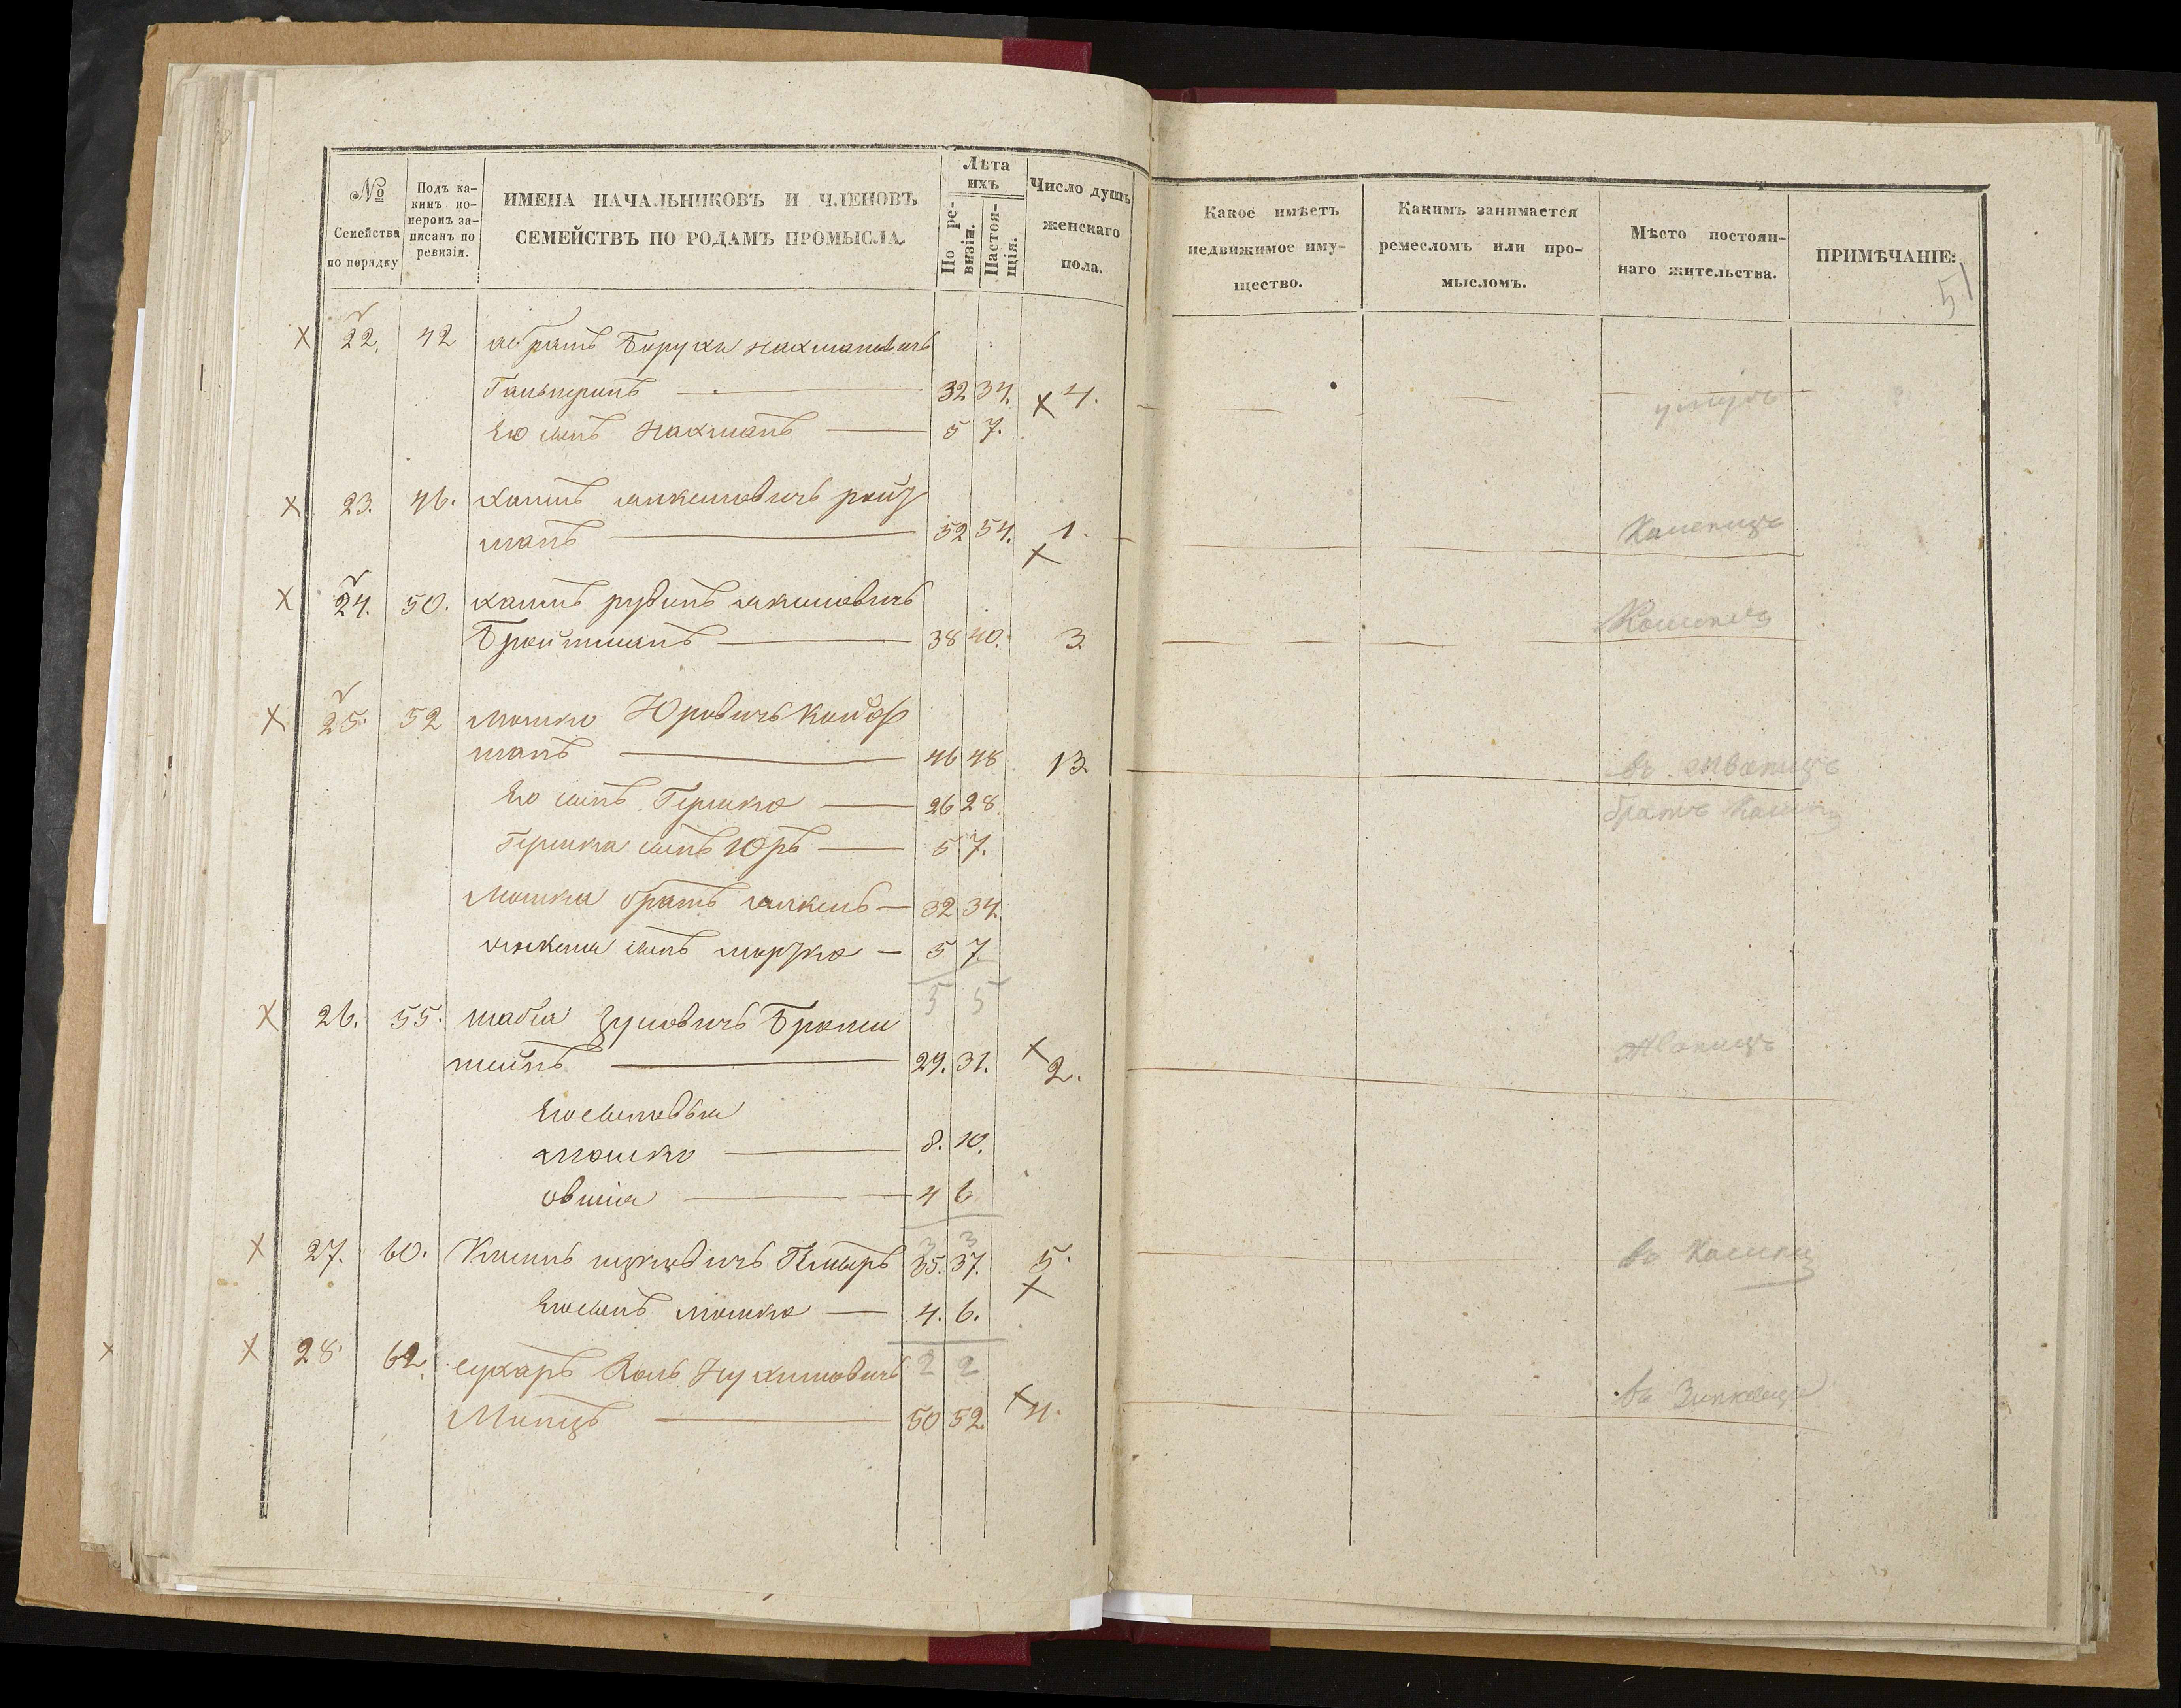 №
Семейства
по порядку
Подъ ка-
кимъ но-
меромъ за-
писанъ по
ревизіи.
ИМЕНА НАЧАЛЬНИКОВЪ И ЧЛЕНОВЪ
СЕМЕЙСТВЪ ПО РОДАМЪ ПРОМЫСЛА.
Лѣта
ихъ
По ре-
визіи.
Настоя-
щія.
Число душъ
женскаго
пола.
Х 22. 42 Боруха Нахмановичъ
Гальперинъ — 32 34. х 4.
Его сынъ Нахманъ — 5 7.
Х 23. 46. Хаимъ Янкелиовичъ Ройз
манъ — 52 54. 1.
х
Х 24. 50. Хаимъ Рувинъ
Бройтманъ — 38 40. 3
Х 25. 52 Мошко Юровичъ Койф
манъ — 46 48 13.
Его сынъ Гершко — 26 28.
Гершка сынъ Юръ — 5 7.
Мошка братъ Янкель — 32 34.
Янкеля сынъ — 5 7
5 5
Х 26. 55. Шабса Зусовичъ Брон
штейнъ — 29. 31. х 2.
Его сыновья
Мошко — 8. 10.
Овшія — 4 6
3 3
Х 27. 60. Ицковичъ 35. 37. 5.
Его сынъ Мошко — 4. 6. х
2 2
х Х 28. 62. Сухаръ Нухимовичъ
Минцъ — 50 52. х 4.
Какое имѣетъ
недвижимое иму-
щество.
Какимъ занимается
ремесломъ или про-
мысломъ.
Мѣсто постоян-
наго жительства.
ПРИМѢЧАНІЕ:
51
Каменецъ
Каменец
въ Жванецъ
братъ Камен
Жванецъ
въ Каменец
въ Зинковцы